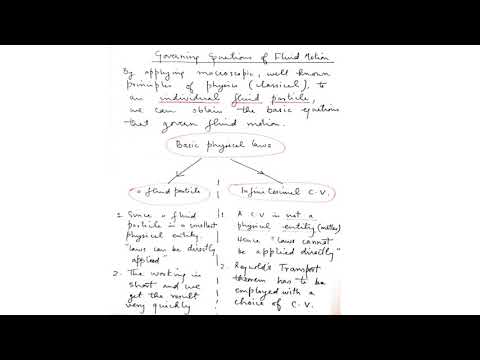 Governing Equations of Fluid Motion
By applying macroscopic, well known
principles of physics (classical), to
an individual fluid particle,
we can obtain the basic equations
that govern fluid motion.
Basic physical laws
a fluid particle
Infinitesimal C.V.
1. Since a fluid
particle is a smallest
physical entity.
"laws can be directly
applied"
2. The working is
short and we
get the result
very quickly
1. A C.V is not a
physical entity (matter)
Hence "laws cannot
be applied directly"
2. Reynold's Transport
theorem has to be
employed with a
choice of C.V.